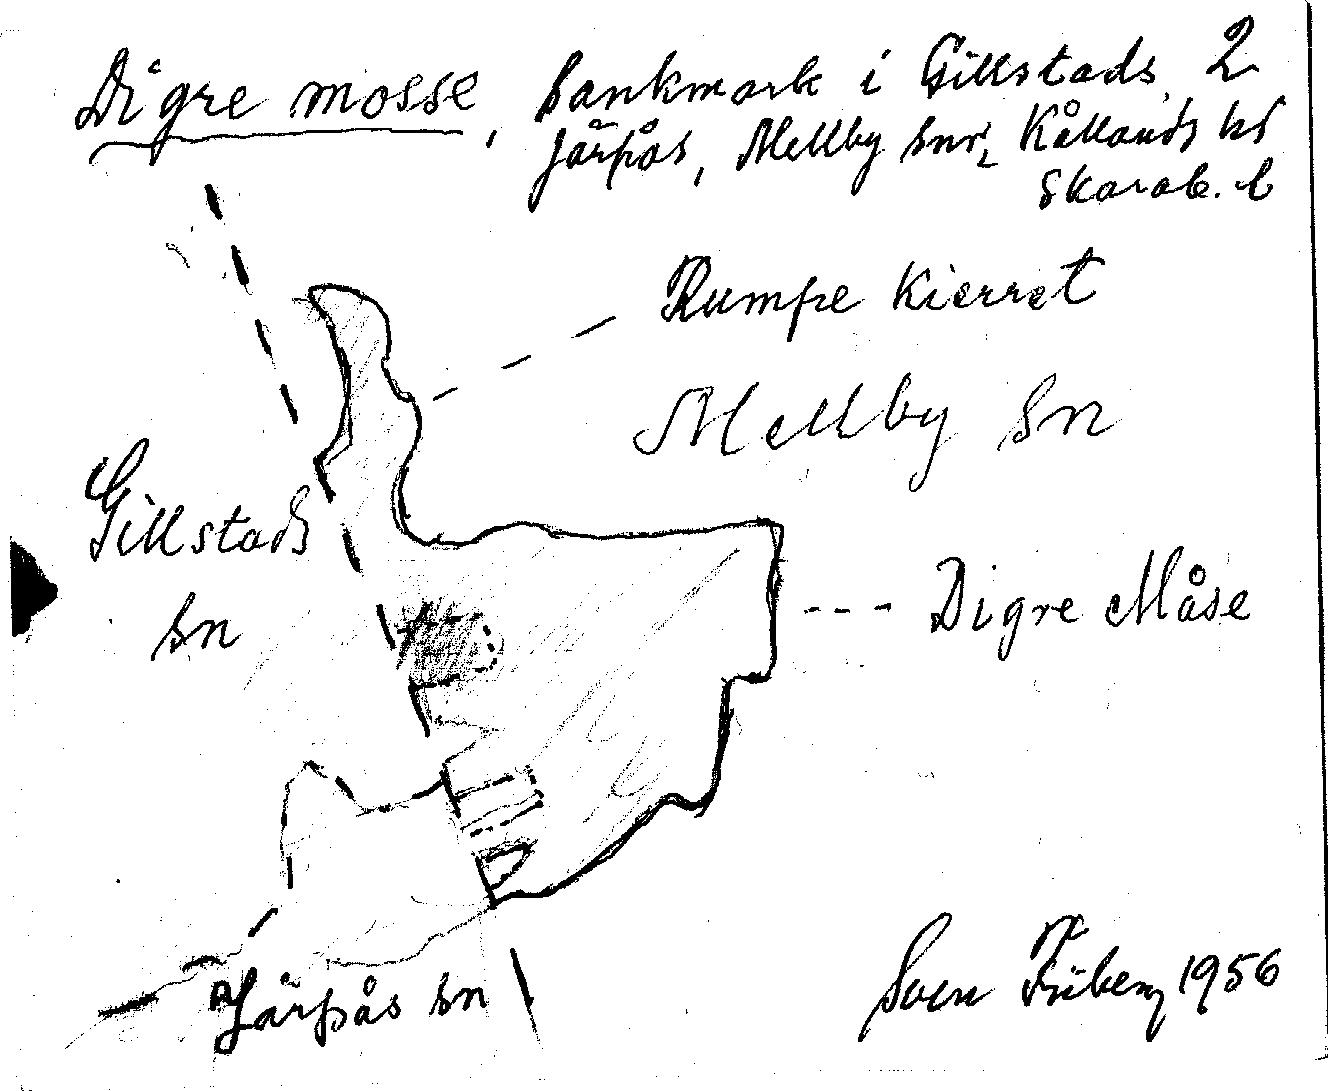 Digre mosse, Sankmark i Gillstads, 2
Järpås, Mellby snr, Kållands hd
Skarab. l
Rumpe Kierret
Mellby sn
Gillstads
sn
Digre Måse
Järpås sn
Sven Friberg 1956